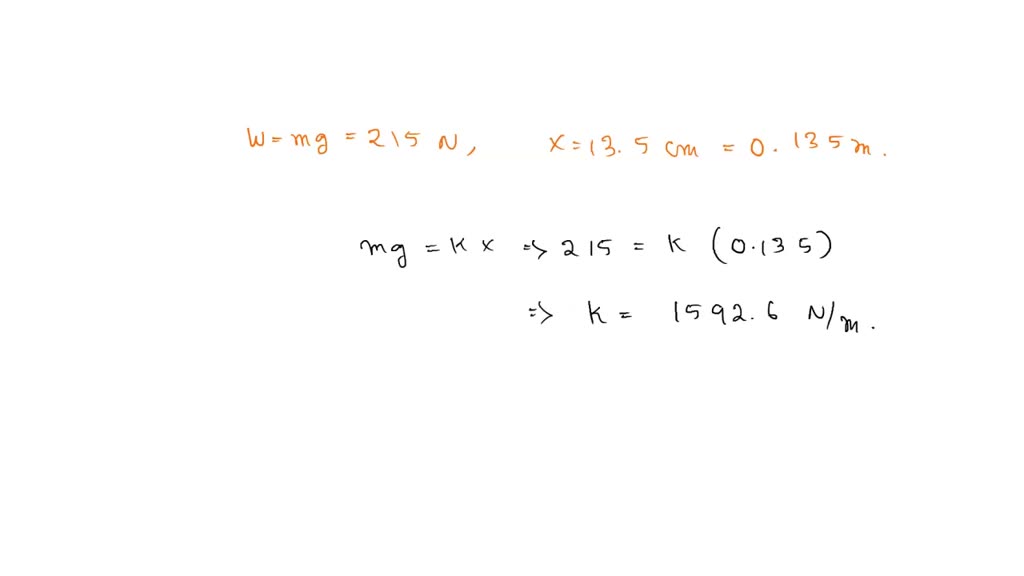 W = mg = 215 N, x = 13.5 cm = 0.135 m.
mg = K x => 215 = K (0.135)
=> K = 1592.6 N/m.